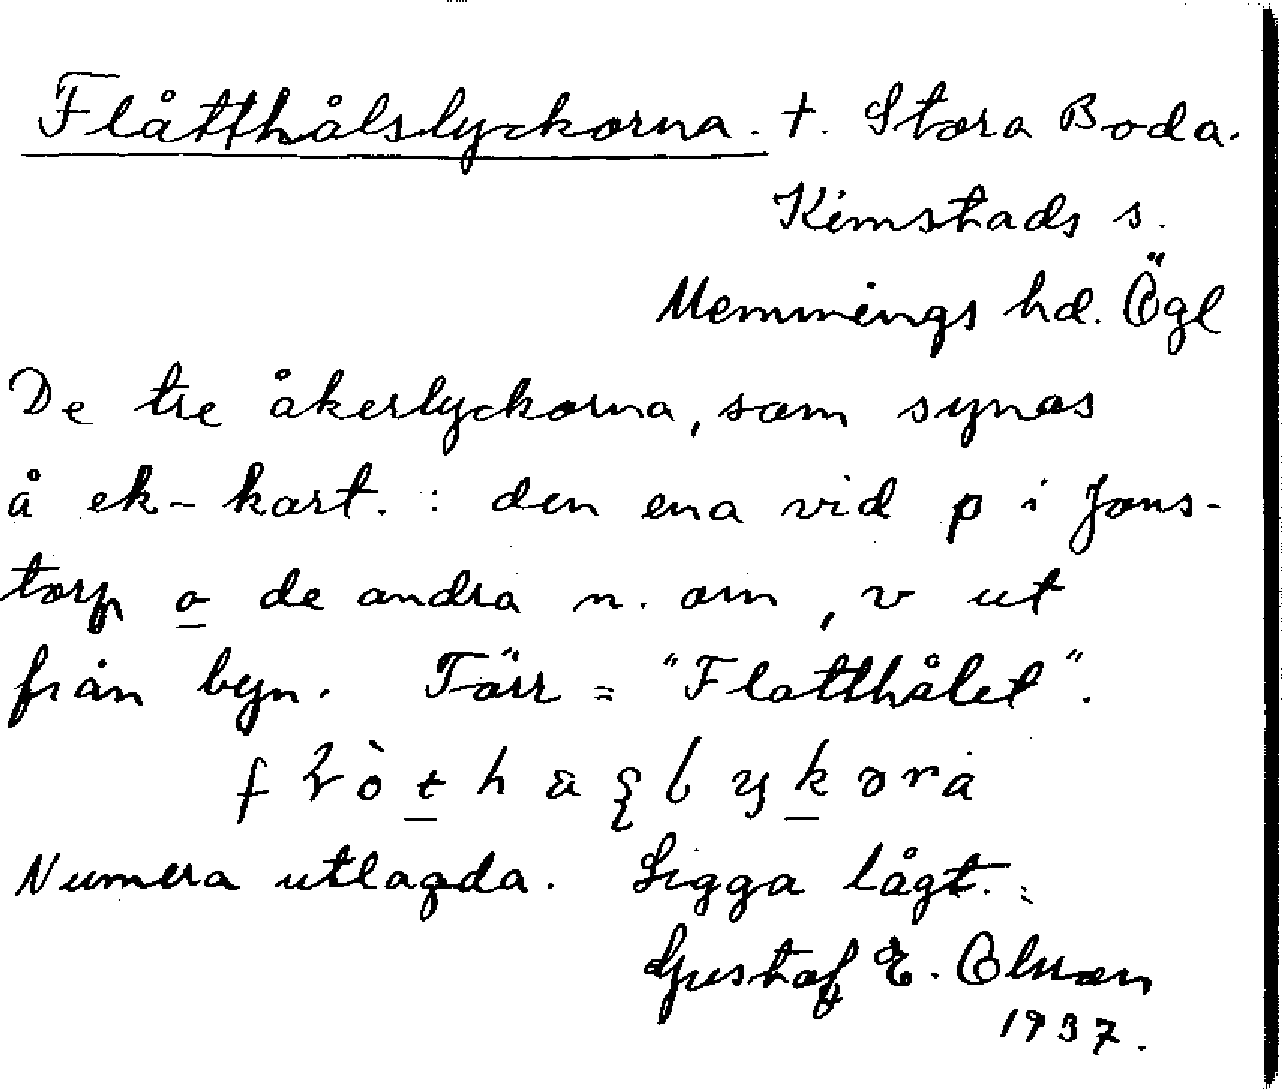 Flåtthålslyckorna. †. Stora Boda.
Kimstads s.
Memmings hd. Ögl
De tre åkerlyckorna, som synas
å ek-kart. : den ena vid p i Jons-
torp o de andra n. om, v ut
från byn. Törr = "Flatthålet".
Numera utlagda. Ligga lågt.
Gustaf E. Olsson
1937.